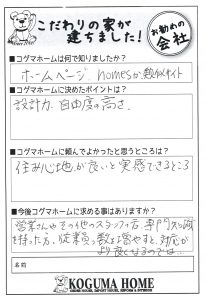 こだわりの家が
建ちました!
お勧めの
会社
■コグマホームは何で知りましたか?
ホームページ homesか、類似サイト
■コグマホームに決めたポイントは?
設計力、自由度の高さ、
■コグマホームに頼んでよかったと思うところは?
住み心地が良いと実感できるところ
■今後コグマホームに求める事はありますか?
営業さんやその他のスタッフの方、専門スキル
を持った方、従業員の数を増やすと、対応が
より良くなるのでは…
名前
KOGUMA HOME